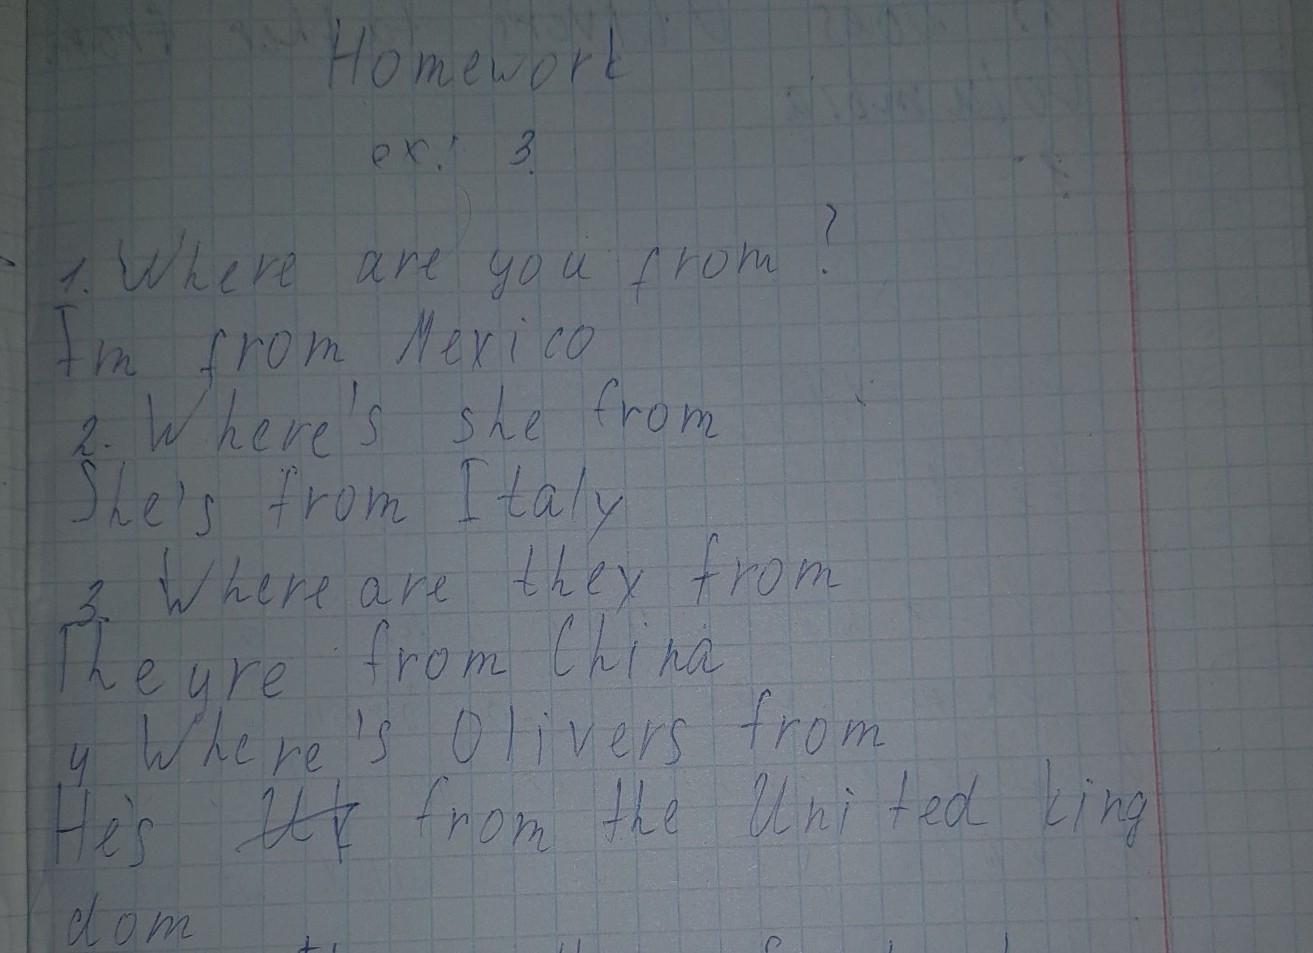 Homework
ex: 3.
1. Where are you from?
Im from Mexico
2. Where's she from
She's from Italy
3. Where are they from
Theyre from China
4 Where's Olivers from
He's from the United king
dom